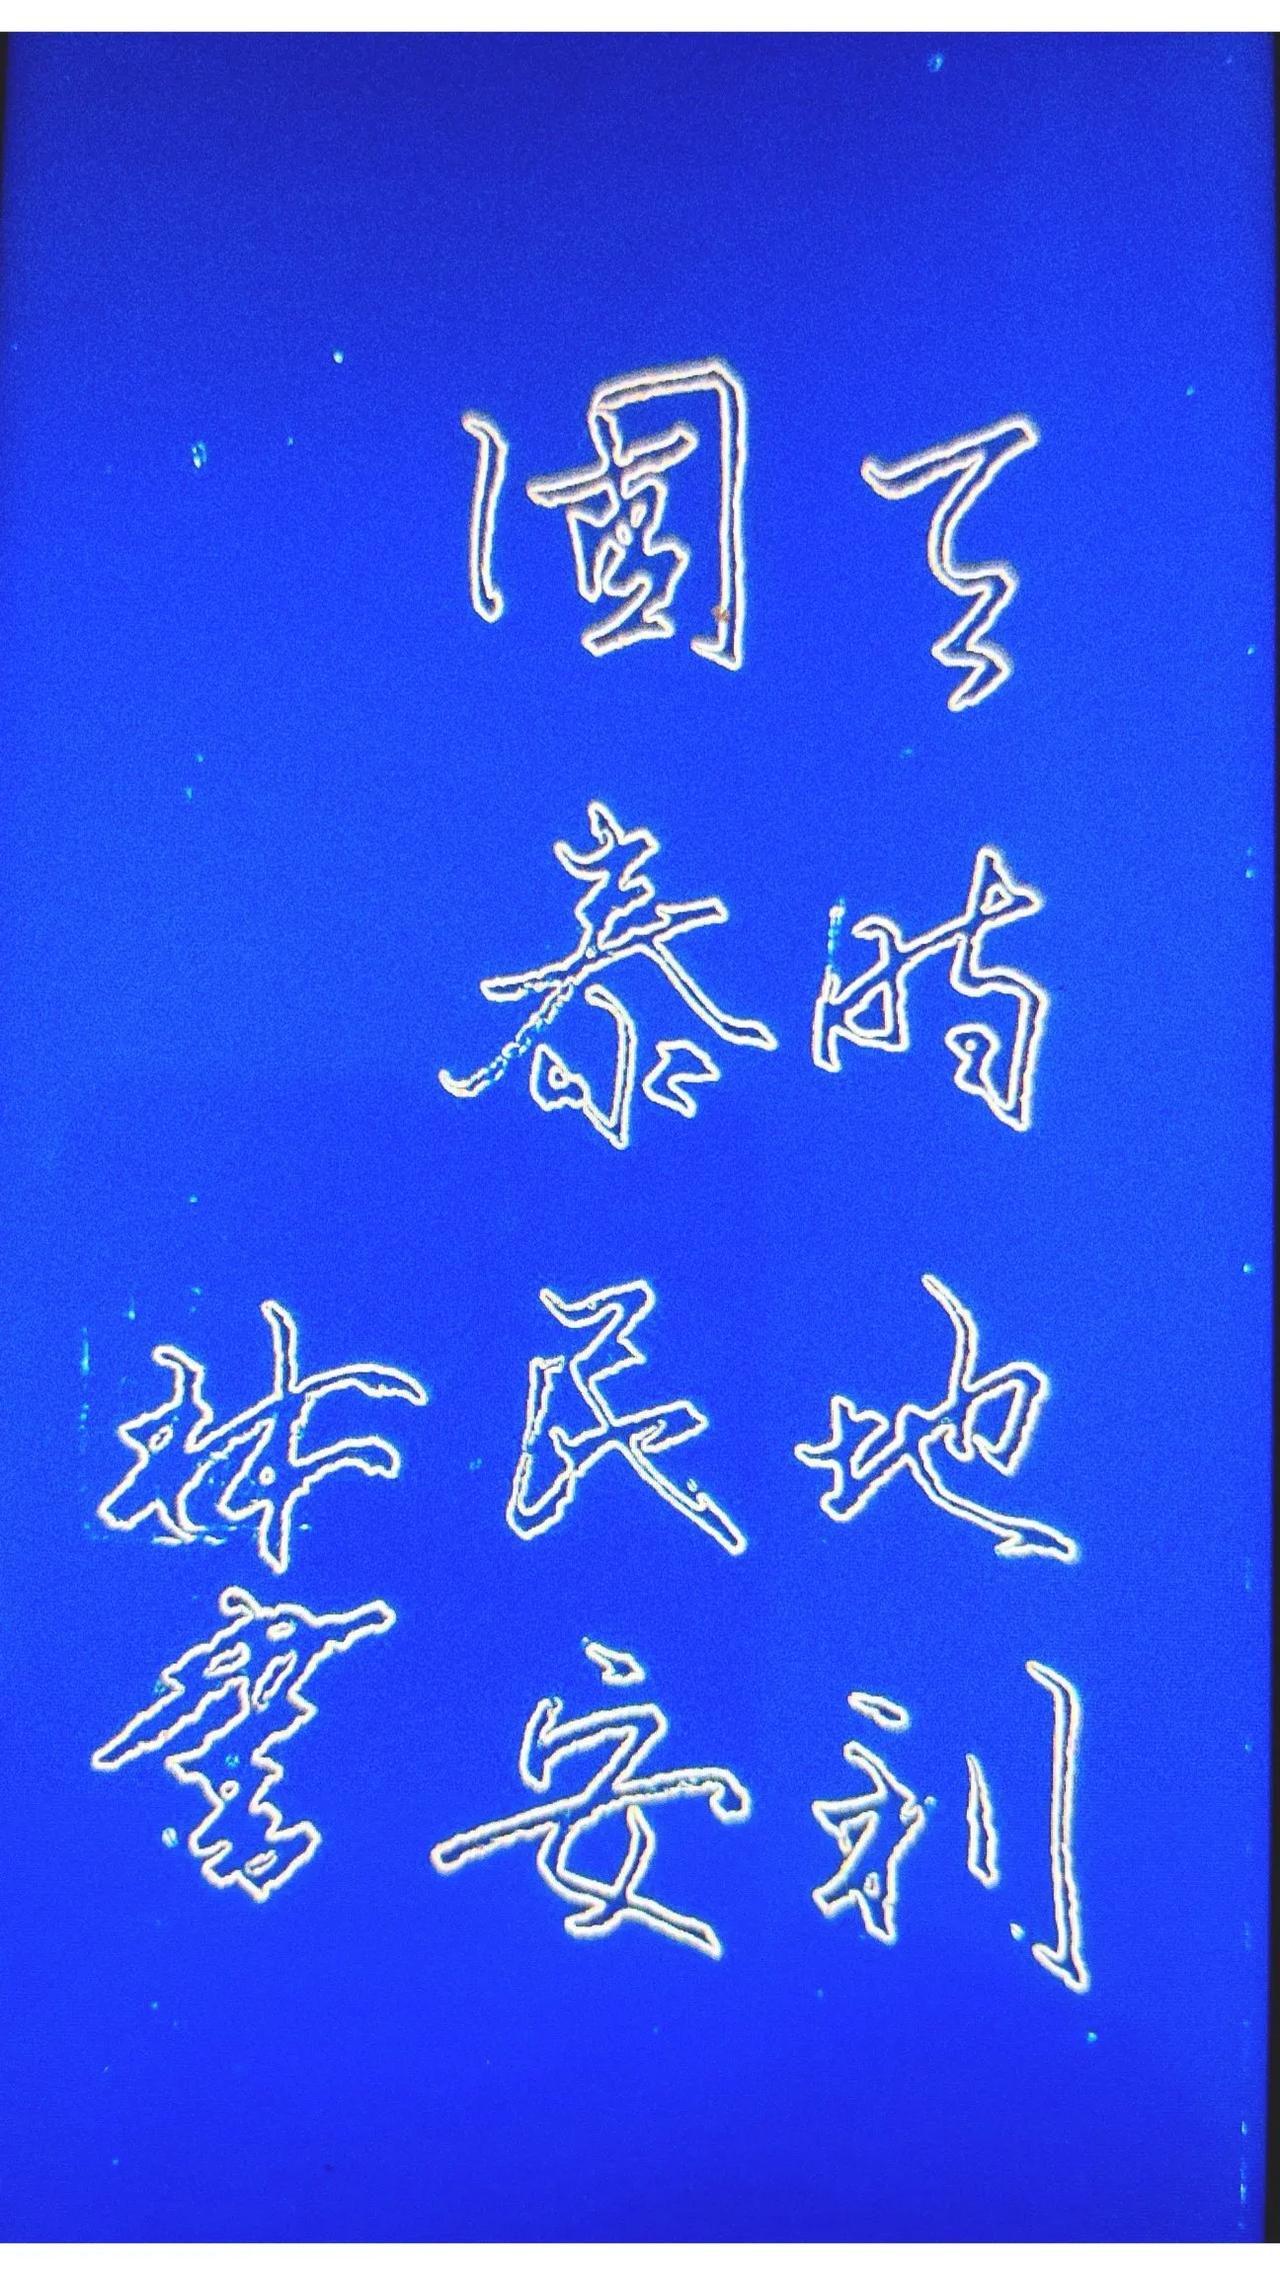 天時地利
國泰民安